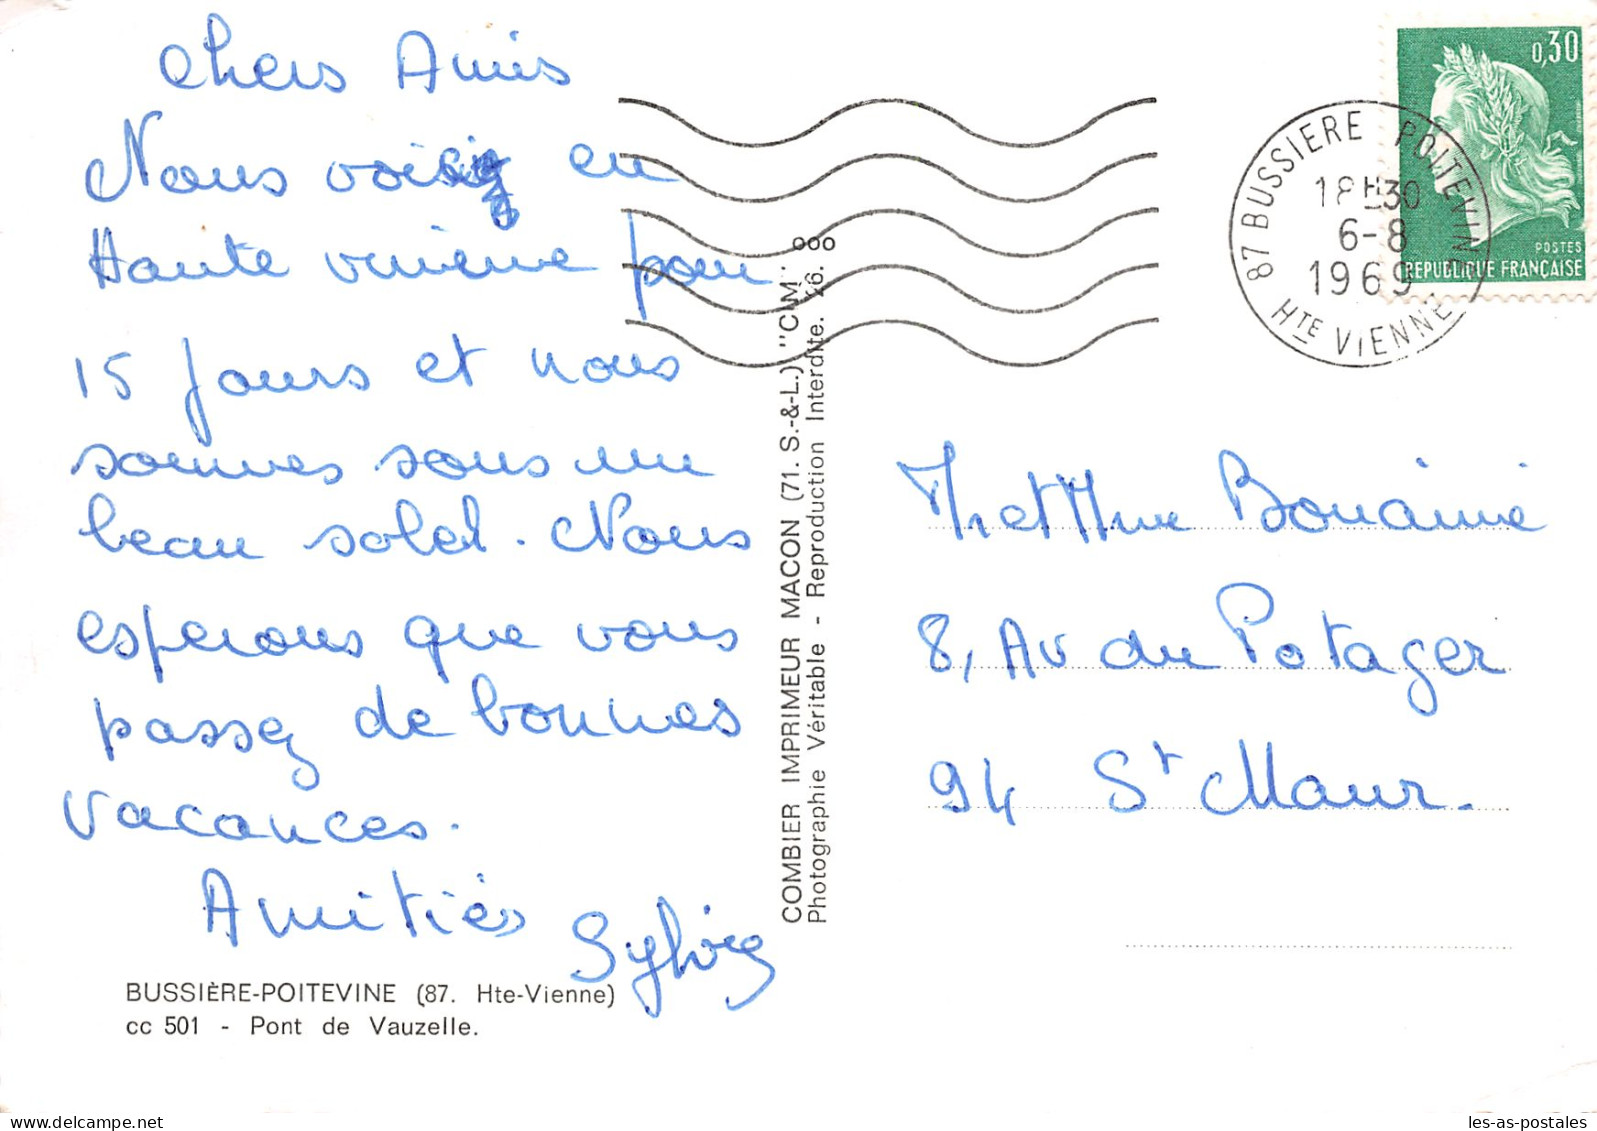 Chers Amis
Nous voici en
Haute vienne pour
15 jours et nous
sommes sous un
beau soleil. Nous
esperons que vous
passez de bonnes
vacances.
Amitiés
Sylvie
BUSSIÈRE-POITEVINE (87. Hte-Vienne)
cc 501 - Pont de Vauzelle.
COMBIER IMPRIMEUR MACON (71. S.-&-L.) "CIM"
Photographie Véritable - Reproduction Interdite. 26. ooo
0,30
POSTES
REPUBLIQUE FRANÇAISE
87 BUSSIERE POITEVINE
18H30
6-8
1969
HTE VIENNE
Mr et Mme
8, Av du Potager
94 St Maur.
les-as-postales
delcampe.net